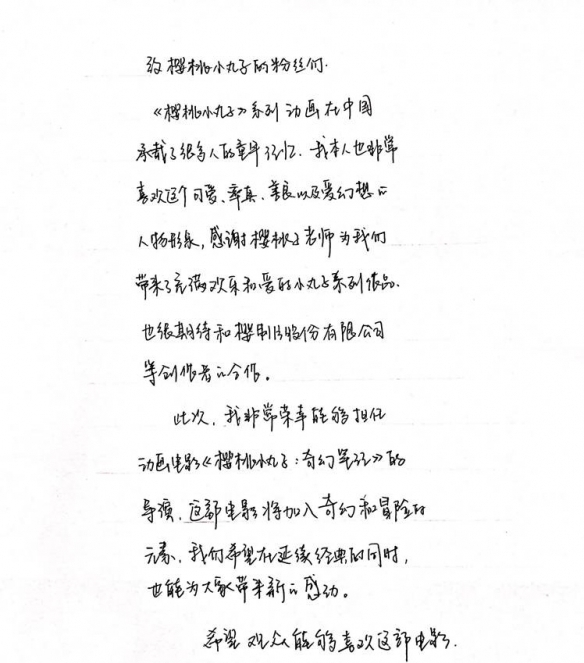 致樱桃小丸子的粉丝们.
《樱桃小丸子》系列动画在中国
承载了很多人的童年记忆. 我本人也非常
喜欢这个可爱、率真、善良以及爱幻想的
人物形象, 感谢樱桃子老师为我们
带来了充满欢乐和爱的小丸子系列作品.
也很期待和樱制作股份有限公司
等创作者的合作。
此次, 我非常荣幸能够担任
动画电影《樱桃小丸子:奇幻笔记》的
导演. 这部电影将加入奇幻和冒险的
元素. 我们希望在延续经典的同时,
也能为大家带来新的感动。
希望观众能够喜欢这部电影.